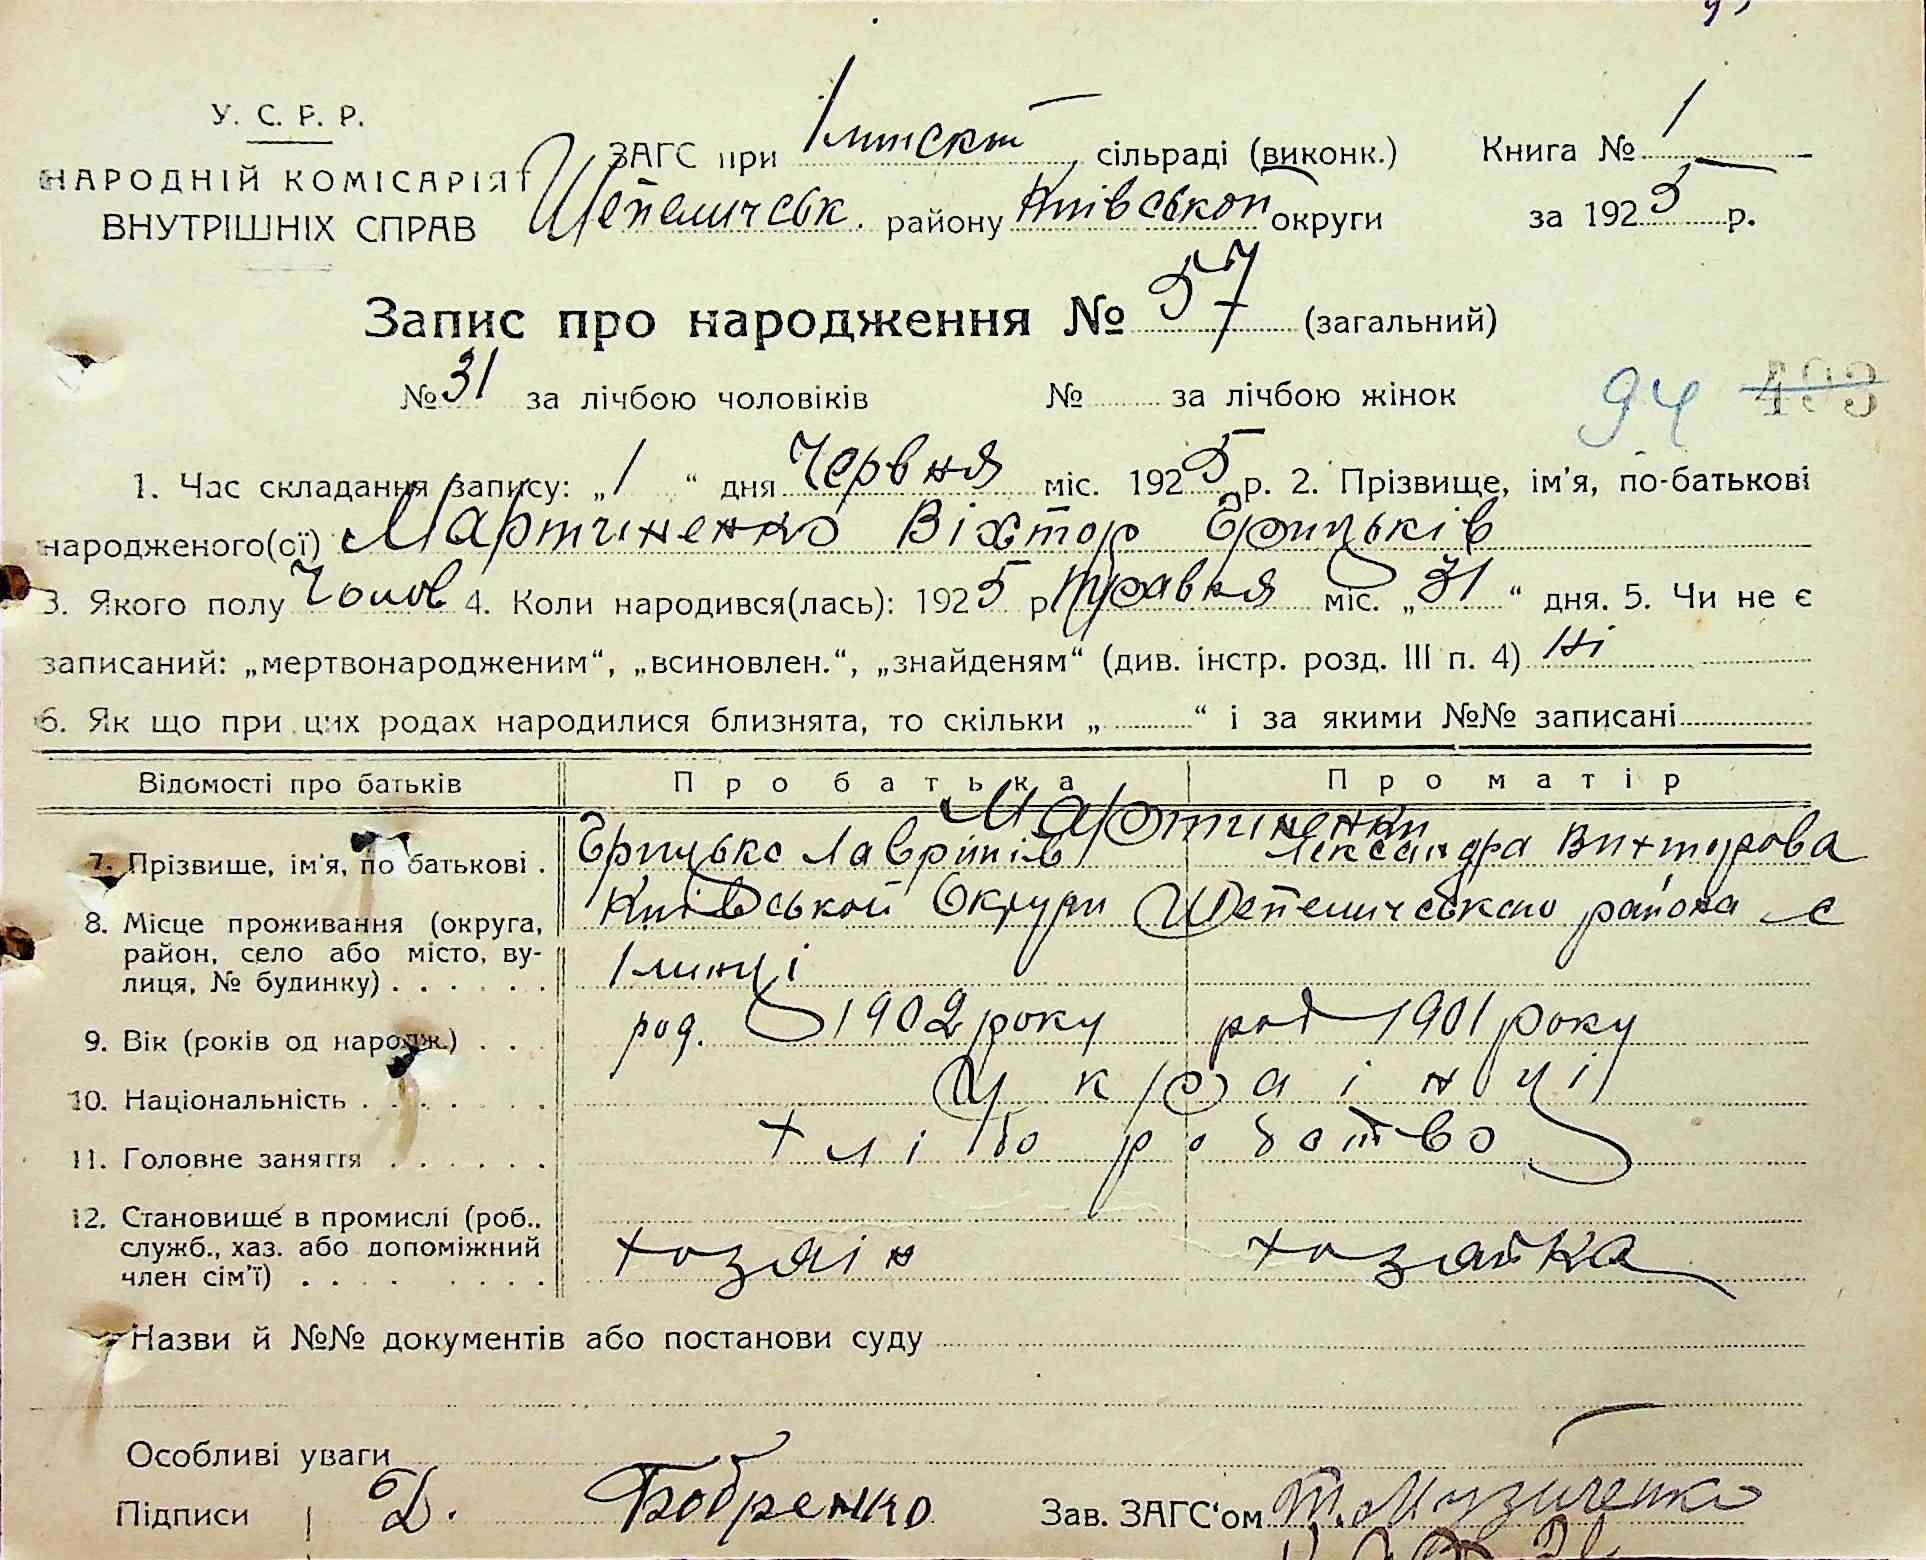 У. С. Р. Р.
НАРОДНІЙ КОМІСАРІЯТ
ВНУТРІШНІХ СПРАВ
ЗАГС при Ілинскій сільраді (виконк.)
Шепеличськ. району Київськой округи
Книга № 1
за 1925 р.
Запис про народження № 57 (загальний)
№ 31 за лічбою чоловіків № за лічбою жінок
94 493
1. Час складання запису: „1“ дня Червня міс. 1925 р. 2. Прізвище, ім'я, по-батькові
народженого(ої) Мартиненко Віхтор Грицьків
3. Якого полу Чолов 4. Коли народився(лась): 1925 р Травня міс. „31“ дня. 5. Чи не є
записаний: „мертвонародженим“, „всиновлен.“, „знайденям“ (див. інстр. розд. III п. 4) Ні
6. Як що при цих родах народилися близнята, то скільки „ “ і за якими №№ записані
Відомості про батьків Про батька Про матір
Мартиненки
7. Прізвище, ім'я, по батькові . Грицько Лаврінів Лександра Вихтурова
8. Місце проживання (округа, Київськой Округи Шепеличського района с
район, село або місто, ву-
лиця, № будинку) . . . . . . Ілинці
9. Вік (років од народж.) . . . род. 1902 року род 1901 року
10. Національність . . . . . . . Українці
11. Головне заняття . . . . . . хліборобство
12. Становище в промислі (роб.,
служб., хаз. або допоміжний хозяін хозяйка
член сім'ї) . . . . . . . . .
Назви й №№ документів або постанови суду
Особливі уваги
Підписи Д. Бобренко Зав. ЗАГС'ом Т. Музиченко